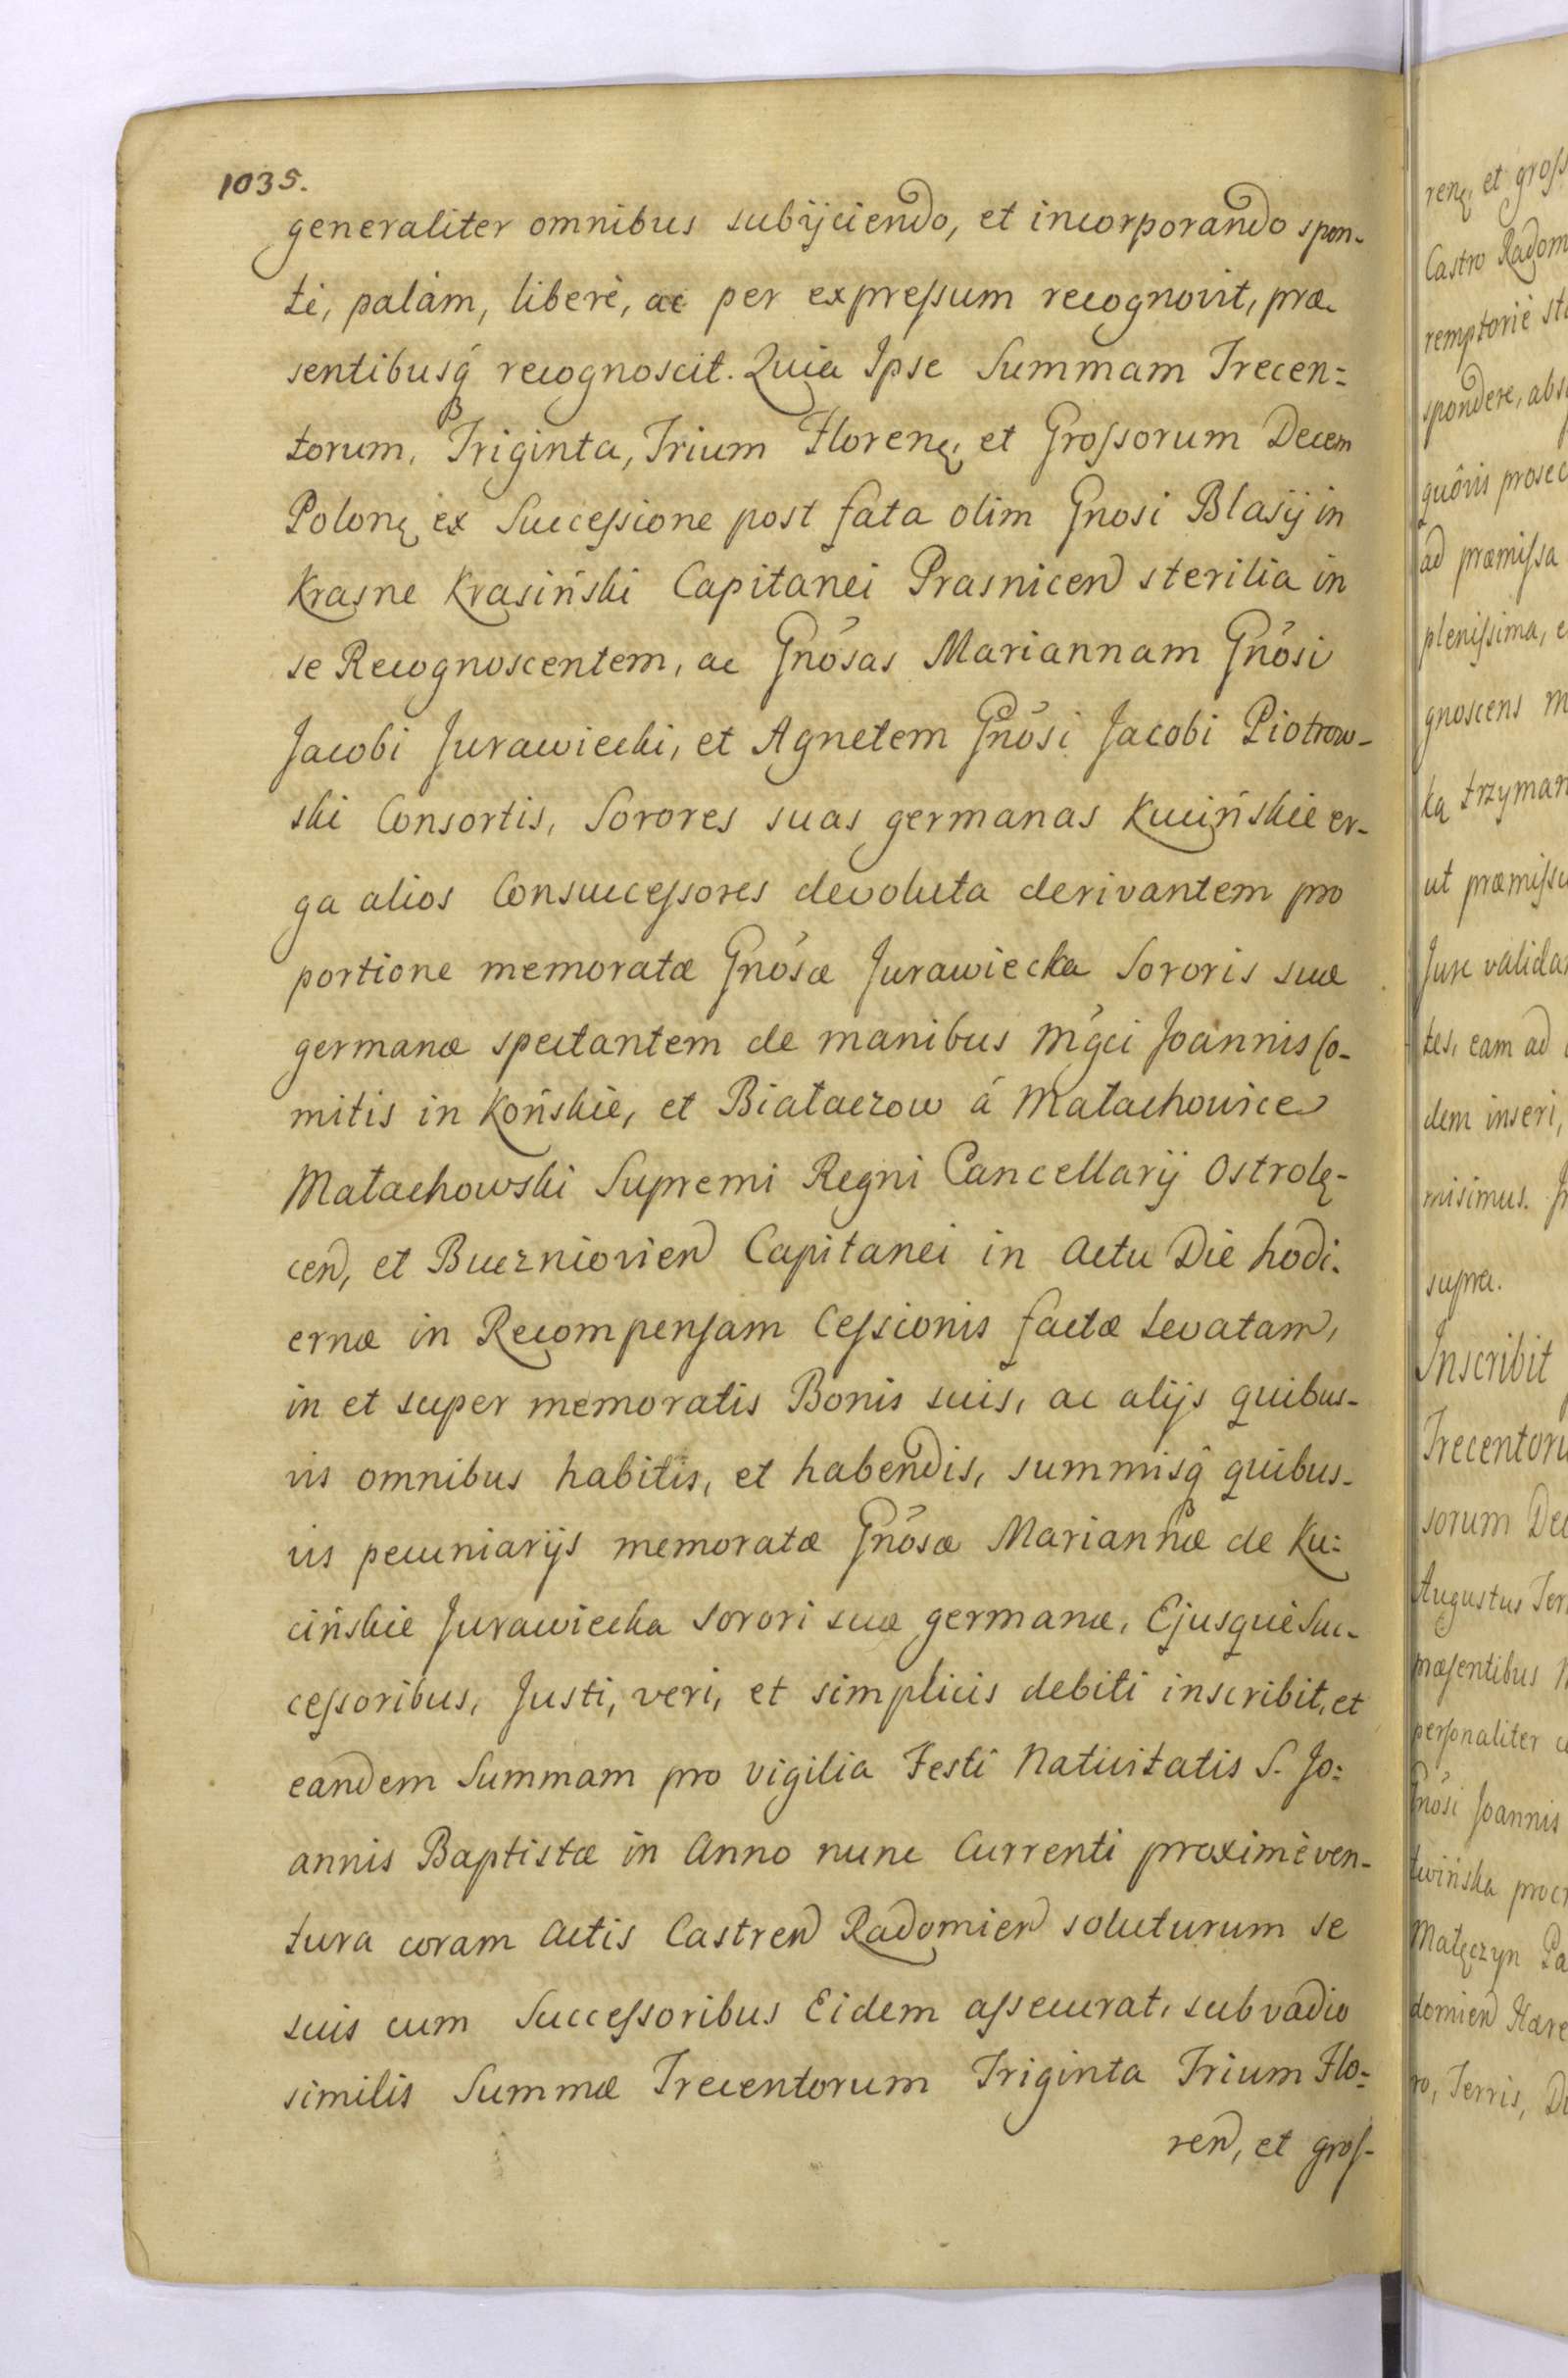 1035.
generaliter omnibus subijciendo, et incorporando spon-
tè, palàm, liberè, ac per expressum recognovit, præ-
sentibusq́ recognoscit. Quia Ipse Summam Trecen=
torum, Triginta, Trium Florenę, et Grossorum Decem
Polonę ex Successione post fata olim Gnosi Blasij in
Krasne Krasiński Capitanei Prasnicen sterilia in
se Recognoscentem, ac Gnősas Mariannam Gnősi
Jacobi Jurawiecki, et Agnetem Gnősi Jacobi Piotrow-
ski Consortis, Sorores suas germanas Kucińskie er-
ga alios Consuccessores devoluta derivantem pro
portione memoratæ Gnősæ Jurawiecka Sororis suæ
germanæ spectantem de manibus Mgći Joannis Co-
mitis in Końskie, et Białaczow á Małachowice
Małachowski Supremi Regni Cancellarij Ostrolę-
cen, et Buczniovien Capitanei in Actu Die hodi-
ernæ in Recompensam Cessionis factæ Levatam,
in et super memoratis Bonis suis, ac alijs quibus-
vis omnibus habitis, et habendis, summisq́ quibus-
vis pecuniarijs memoratæ Gnősæ Mariannæ de Ku=
cińskie Jurawiecka Sorori suæ germanæ, Ejusquè Suc-
cessoribus, Justi, veri, et simplicis debiti inscribit, et
eandem Summam pro vigilia Festi Nativitatis S. Jo=
annis Baptistæ in Anno nunc Currenti proximè ven-
tura coram Actis Castren Radomien soluturum se
suis cum Successoribus Eidem assecurat, sub vadio
similis Summæ Trecentorum Triginta Trium Flo=
ren, et gros-
renę, et gross
Castro Radom
remptoriè sta
spondere, abs
quôvis prosec
ad præmissa
plenissima, e
gnoscens m
ką trzyman
ut præmissu
Jure valida
tes, eam ad
dem inseri,
misimus.
supra.
Inscribit
Trecentoru
sorum Dec
Augustus Ter
præsentibus
personaliter
Gnősi Joannis
twińska procr
Małęczyn Pa
domien Hære
ro, Terris, Di